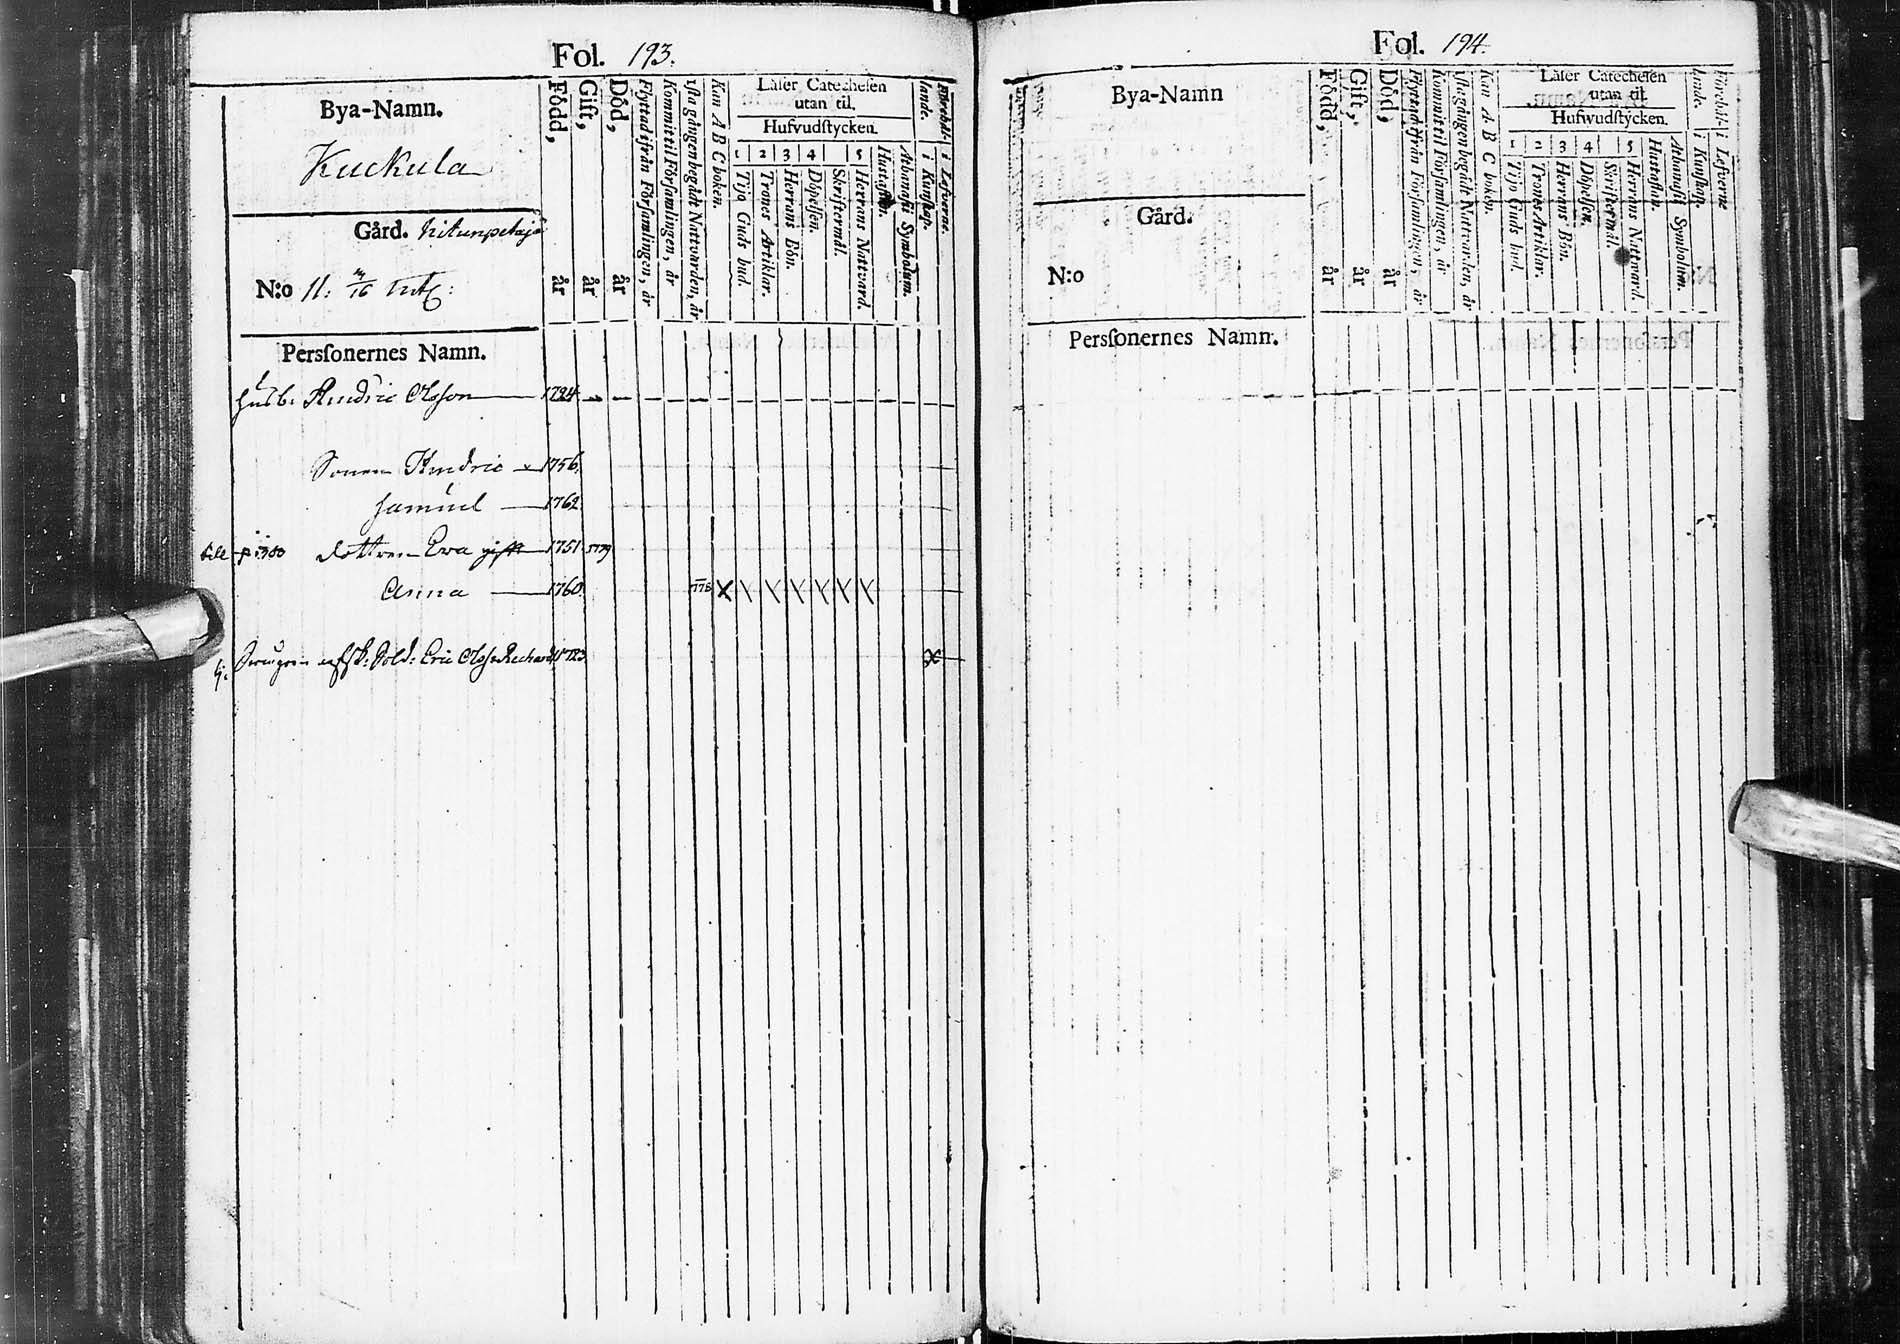 Fol. 193.
Bya-Namn.
Kuckula
Gård.
N:o 11.
Persſonernes Namn.
Född, år
Gift, år
Död, år
Flyttad ifrån Församlingen, år
Kommit til Församlingen, år
1ſta gången begådt Nattvarden, år
Kan A B C boken.
Läſer Catecheſen
utan til.
Hufvudſtycken.
1 2 3 4 5
Tijo Guds bud.
Trones Artiklar.
Herrans Bön.
Döpelſen.
Skriftermål.
Herrans Nattvard.
Huſtaflan.
Athanaſii Symbolum.
Förehållande.
i Kunſkap.
i Lefverne.
Husb: Hendric Olsson 1724
Sonen Hendric 1756.
Samuel 1762
till 1780 dottren Eva gift 1751 1779
Anna 1760 1778
Sold: Eric 1723
Fol. 194.
Bya-Namn
Gård.
N:o
Persſonernes Namn.
Född, år
Gift, år
Död, år
Flyttad ifrån Församlingen, år
Kommit til Församlingen, år
1ſta gången begådt Nattvarden, år
Kan A B C boken.
Läſer Catecheſen
utan til.
Hufwudſtycken.
1 2 3 4 5
Tijo Guds bud.
Trones Artiklar.
Herrans Bön.
Döpelſen.
Skriftermål.
Herrans Nattvard.
Huſtaflan.
Athanaſii Symbolum.
Förehållande.
i Kunſkap.
i Lefverne